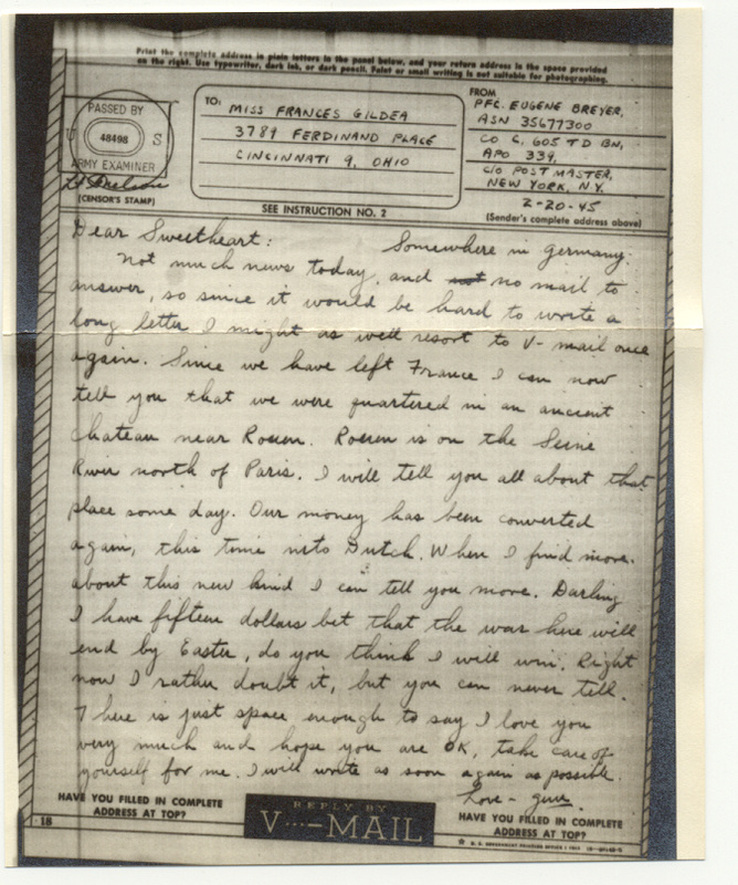 Print the complete address in plain letters in the panel below, and your return address in the space provided
on the right. Use typewriter, dark ink, or dark pencil. Faint or small writing is not suitable for photographing.
PASSED BY
U 48498 S
ARMY EXAMINER
(CENSOR'S STAMP)
TO:
MISS FRANCES GILDEA
3789 FERDINAND PLACE
CINCINNATI 9, OHIO
SEE INSTRUCTION NO. 2
FROM
PFC. EUGENE BREYER,
ASN 35677300
CO C, 605 TD BN,
APO 339,
C/O POST MASTER,
NEW YORK, N.Y.
2-20-45
(Sender's complete address above)
Dear Sweetheart: Somewhere in Germany.
Not much news today, and not no mail to
answer, so since it would be hard to write a
long letter I might as well resort to V-mail once
again. Since we have left France I can now
tell you that we were quartered in an ancient
chateau near Rouen. Rouen is on the Seine
River north of Paris. I will tell you all about that
place some day. Our money has been converted
again, this time into Dutch. When I find more
about this new kind I can tell you more. Darling
I have fifteen dollars bet that the war here will
end by Easter, do you think I will win. Right
now I rather doubt it, but you can never tell.
There is just space enough to say I love you
very much and hope you are OK, take care of
yourself for me. I will write as soon again as possible.
Love - Gene.
HAVE YOU FILLED IN COMPLETE
ADDRESS AT TOP?
REPLY BY
V···—MAIL
HAVE YOU FILLED IN COMPLETE
ADDRESS AT TOP?
18
U. S. GOVERNMENT PRINTING OFFICE